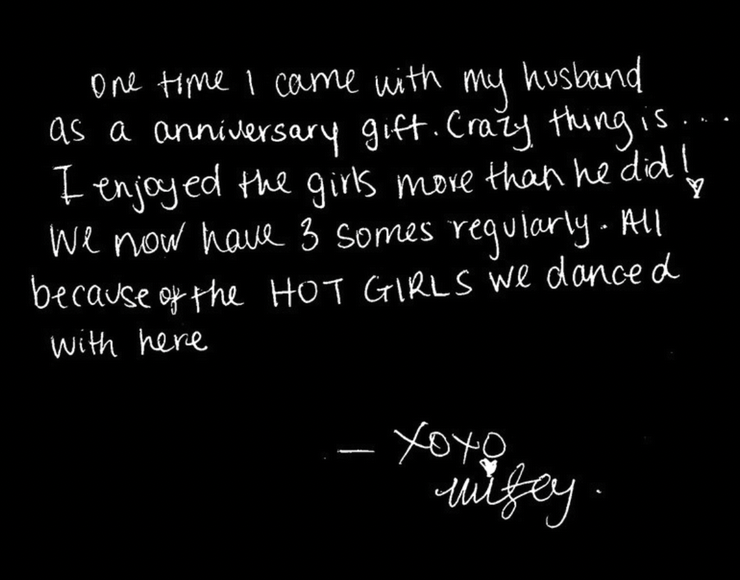 one time I came with my husband
as a anniversary gift. Crazy thing is....
I enjoyed the girls more than he did!
We now have 3 somes regularly. All
because of the HOT GIRLS we danced
with here
— XOXO
wifey.